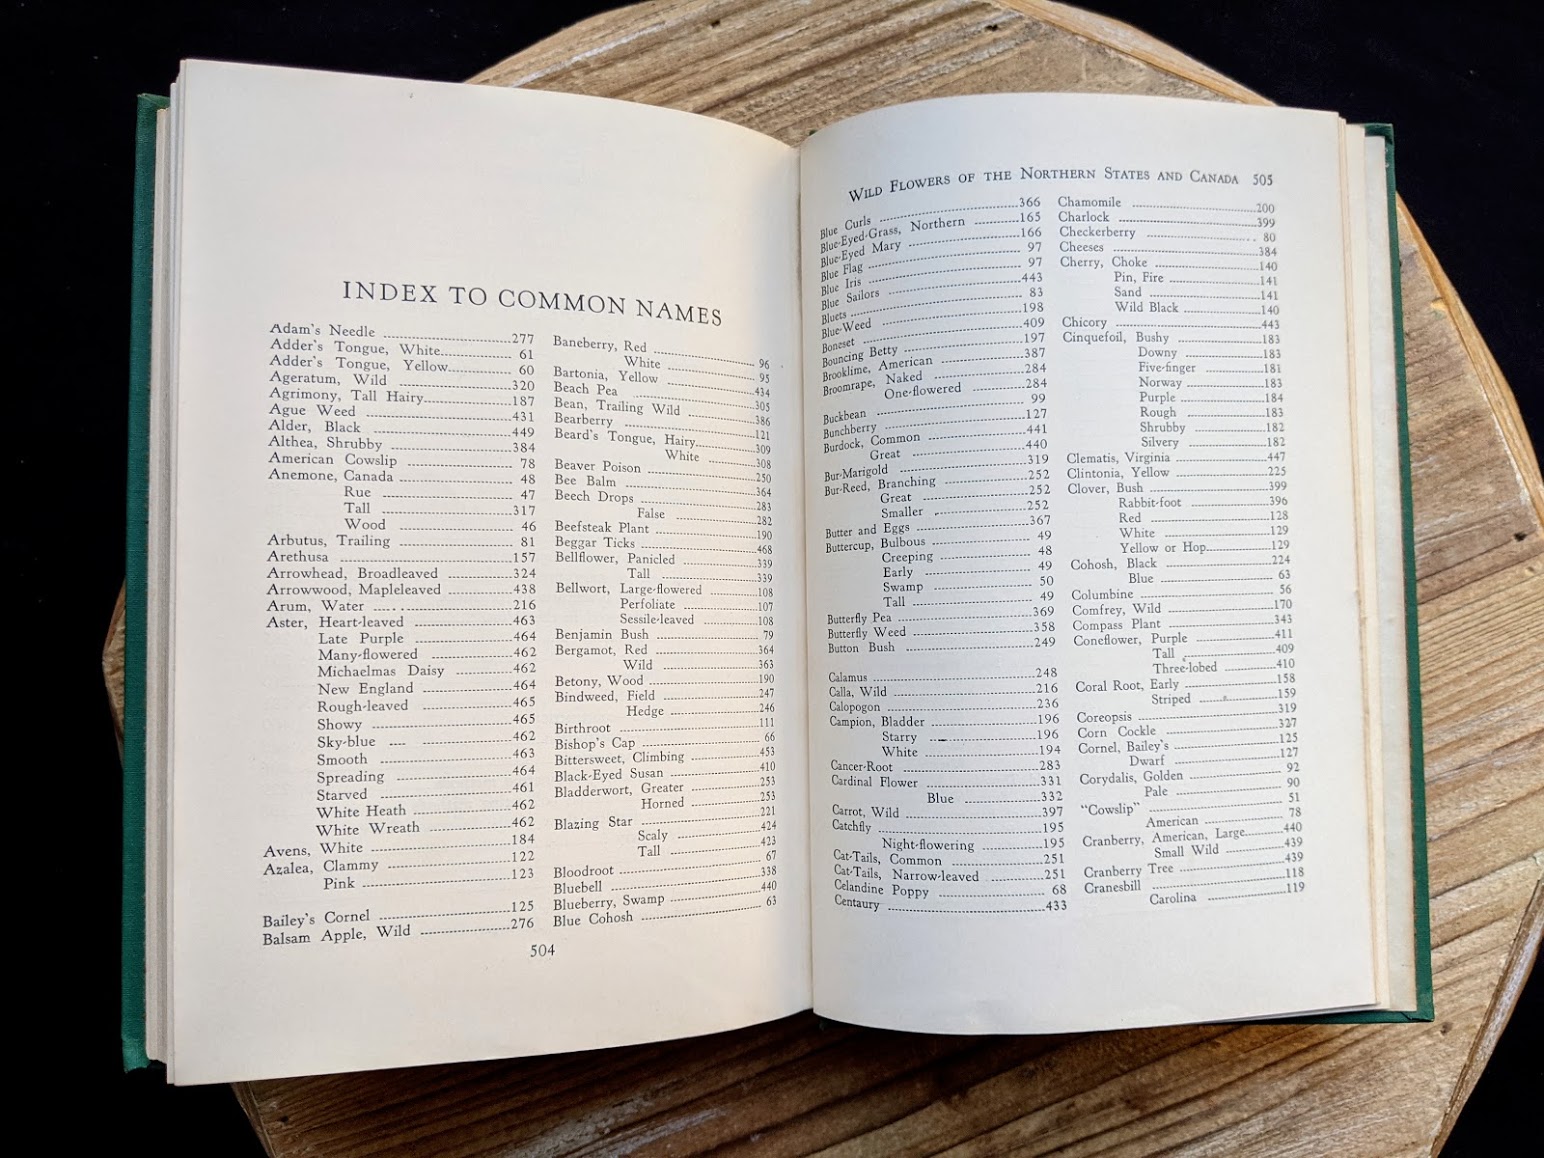 INDEX TO COMMON NAMES
Adam's Needle 277
Adder's Tongue, White 61
Adder's Tongue, Yellow 60
Ageratum, Wild 320
Agrimony, Tall Hairy 187
Ague Weed 431
Alder, Black 449
Althea, Shrubby 384
American Cowslip 78
Anemone, Canada 48
Rue 47
Tall 317
Wood 46
Arbutus, Trailing 81
Arethusa 157
Arrowhead, Broadleaved 324
Arrowwood, Mapleleaved 438
Arum, Water 216
Aster, Heart-leaved 463
Late Purple 464
Many-flowered 462
Michaelmas Daisy 462
New England 464
Rough-leaved 465
Showy 465
Sky-blue 462
Smooth 463
Spreading 464
Starved 461
White Heath 462
White Wreath 462
Avens, White 184
Azalea, Clammy 122
Pink 123
Bailey's Cornel 125
Balsam Apple, Wild 276
Baneberry, Red 96
White 95
Bartonia, Yellow 434
Beach Pea 305
Bean, Trailing Wild 386
Bearberry 121
Beard's Tongue, Hairy 309
White 308
Beaver Poison 250
Bee Balm 364
Beech Drops 283
False 282
Beefsteak Plant 190
Beggar Ticks 468
Bellflower, Panicled 339
Tall 339
Bellwort, Large-flowered 108
Perfoliate 107
Sessile-leaved 108
Benjamin Bush 79
Bergamot, Red 364
Wild 363
Betony, Wood 190
Bindweed, Field 247
Hedge 246
Birthroot 111
Bishop's Cap 66
Bittersweet, Climbing 453
Black-Eyed Susan 410
Bladderwort, Greater 253
Horned 253
Blazing Star 221
Scaly 424
Tall 423
Bloodroot 67
Bluebell 338
Blueberry, Swamp 440
Blue Cohosh 63
504
WILD FLOWERS OF THE NORTHERN STATES AND CANADA 505
Blue Curls 366
Blue-Eyed-Grass, Northern 165
Blue-Eyed Mary 166
Blue Flag 97
Blue Iris 97
Blue Sailors 443
Bluets 83
Blue-Weed 198
Boneset 409
Bouncing Betty 197
Brooklime, American 387
Broomrape, Naked 284
One-flowered 284
Buckbean 99
Bunchberry 127
Burdock, Common 441
Great 440
Bur-Marigold 319
Bur-Reed, Branching 252
Great 252
Smaller 252
Butter and Eggs 367
Buttercup, Bulbous 49
Creeping 48
Early 49
Swamp 50
Tall 49
Butterfly Pea 369
Butterfly Weed 358
Button Bush 249
Calamus 248
Calla, Wild 216
Calopogon 236
Campion, Bladder 196
Starry 196
White 194
Cancer-Root 283
Cardinal Flower 331
Blue 332
Carrot, Wild 397
Catchfly 195
Night-flowering 195
Cat-Tails, Common 251
Cat-Tails, Narrow-leaved 251
Celandine Poppy 68
Centaury 433
Chamomile 200
Charlock 399
Checkerberry 80
Cheeses 384
Cherry, Choke 140
Pin, Fire 141
Sand 141
Wild Black 140
Chicory 443
Cinquefoil, Bushy 183
Downy 183
Five-finger 181
Norway 183
Purple 184
Rough 183
Shrubby 182
Silvery 182
Clematis, Virginia 447
Clintonia, Yellow 225
Clover, Bush 399
Rabbit-foot 396
Red 128
White 129
Yellow or Hop 129
Cohosh, Black 224
Blue 63
Columbine 56
Comfrey, Wild 170
Compass Plant 343
Coneflower, Purple 411
Tall 409
Three-lobed 410
Coral Root, Early 158
Striped 159
Coreopsis 319
Corn Cockle 327
Cornel, Bailey's 125
Dwarf 127
Corydalis, Golden 92
Pale 90
"Cowslip" 51
American 78
Cranberry, American, Large 440
Small Wild 439
Cranberry Tree 439
Cranesbill 118
Carolina 119